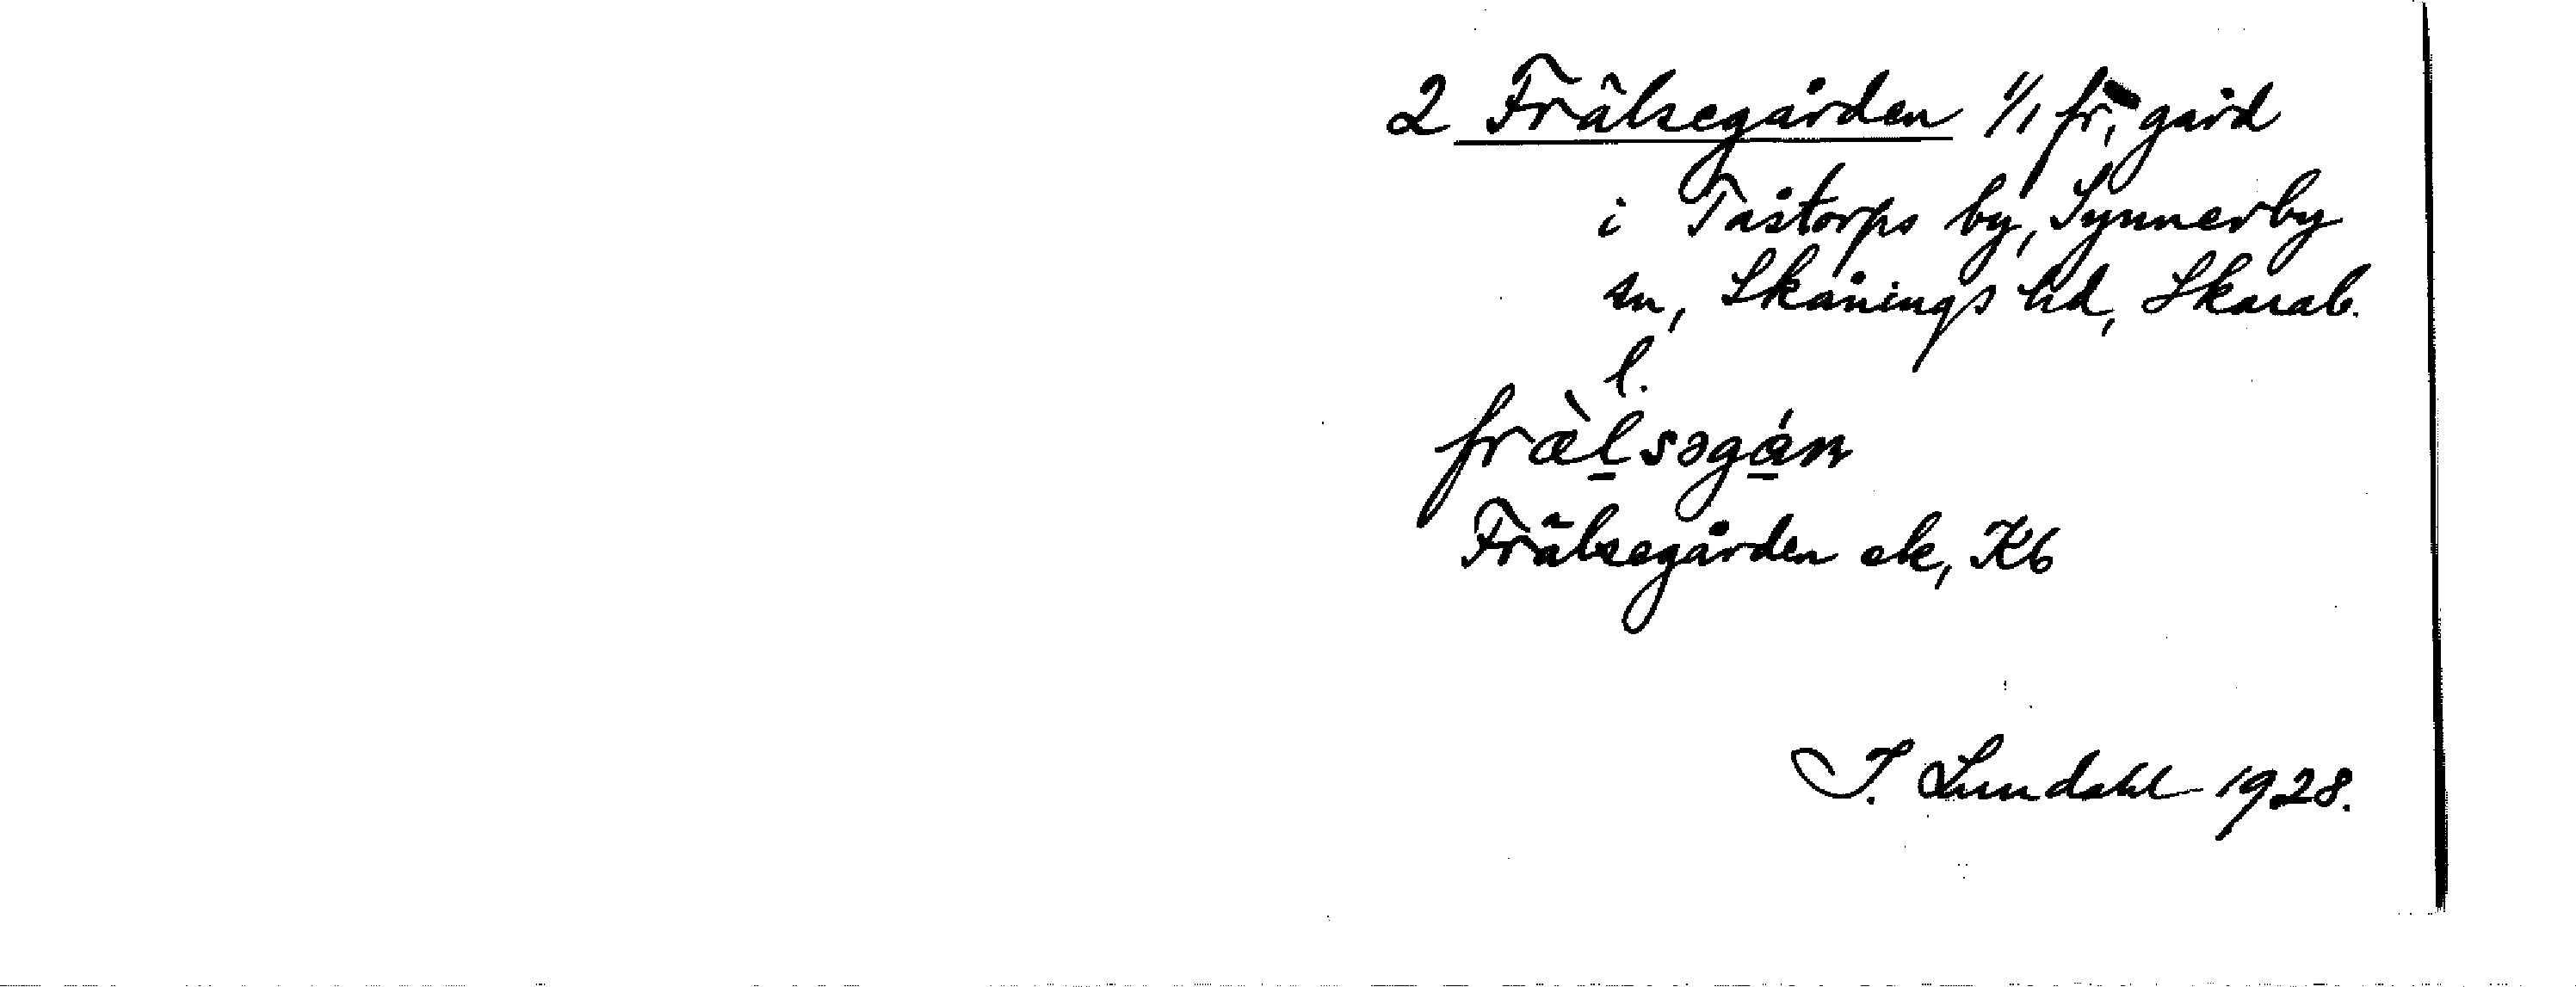 2 Frälsegården 1/1 fr. gård
i Tåstorps by, Synnerby
sn, Skånings hd, Skarab.
l.
fræ̀l̠səgá̠n
Frälsegården ek, Kb
I. Lundahl 1928.